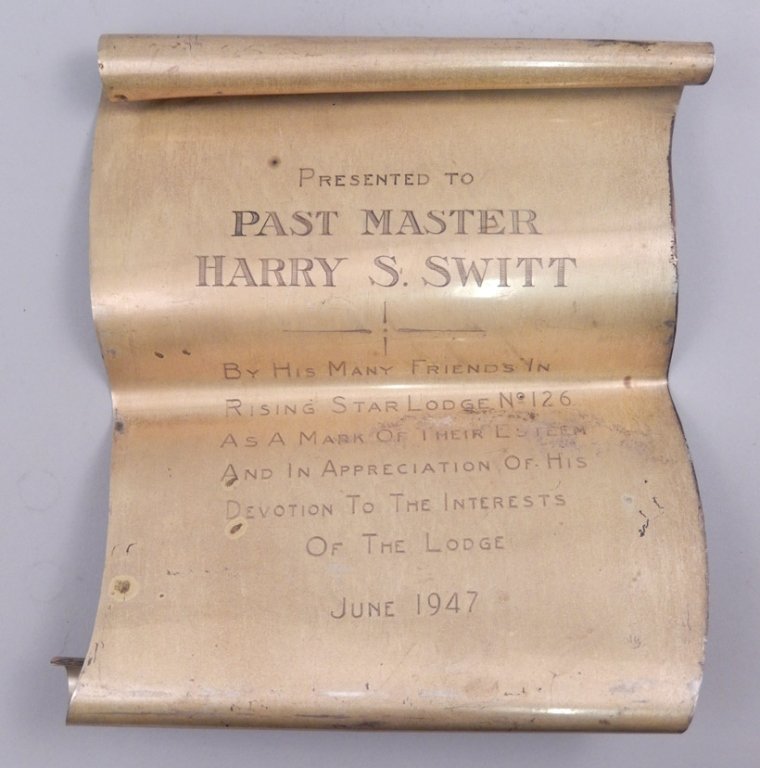 PRESENTED TO
PAST MASTER
HARRY S. SWITT
BY HIS MANY FRIENDS IN
RISING STAR LODGE No. 126
AS A MARK OF THEIR ESTEEM
AND IN APPRECIATION OF HIS
DEVOTION TO THE INTERESTS
OF THE LODGE
JUNE 1947